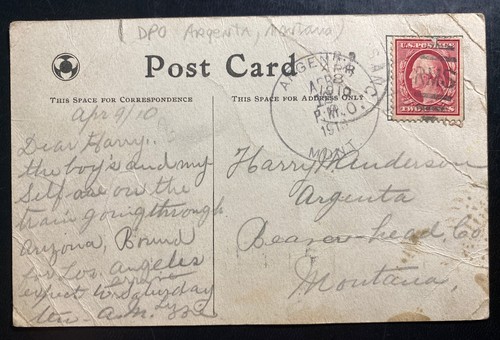 (DPO Argenta, Montana)
Post Card
THIS SPACE FOR CORRESPONDENCE
THIS SPACE FOR ADDRESS ONLY
U.S. POSTAGE
TWO CENTS
ARGENTA
APR
1910
P.M.
1910
MONT.
Apr 9/10
Dear Harry..
the boy's and my
Self are on the
train going through
Aryona, Bound
for Los. Angeles
expect to arrive Saturday
ten - A.M.
Harry Henderson
Argenta
Beaver-head, Co
Montana,